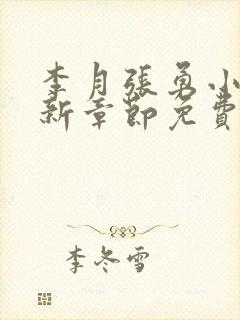 李月張勇小
新章節免費
李冬雪